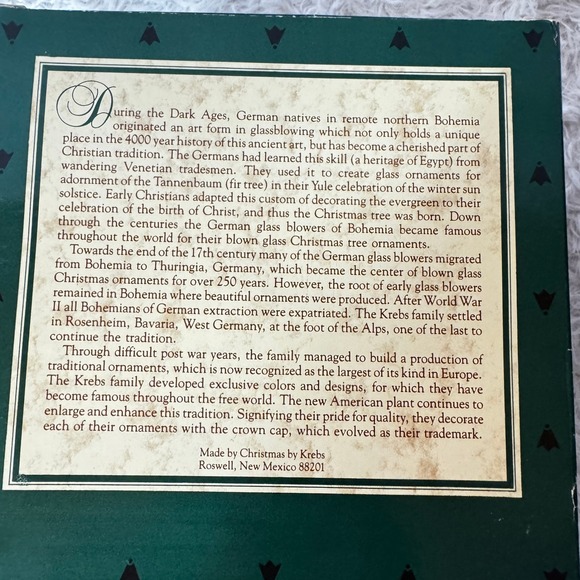 During the Dark Ages, German natives in remote northern Bohemia
originated an art form in glassblowing which not only holds a unique
place in the 4000 year history of this ancient art, but has become a cherished part of
Christian tradition. The Germans had learned this skill (a heritage of Egypt) from
wandering Venetian tradesmen. They used it to create glass ornaments for
adornment of the Tannenbaum (fir tree) in their Yule celebration of the winter sun
solstice. Early Christians adapted this custom of decorating the evergreen to their
celebration of the birth of Christ, and thus the Christmas tree was born. Down
through the centuries the German glass blowers of Bohemia became famous
throughout the world for their blown glass Christmas tree ornaments.
Towards the end of the 17th century many of the German glass blowers migrated
from Bohemia to Thuringia, Germany, which became the center of blown glass
Christmas ornaments for over 250 years. However, the root of early glass blowers
remained in Bohemia where beautiful ornaments were produced. After World War
II all Bohemians of German extraction were expatriated. The Krebs family settled
in Rosenheim, Bavaria, West Germany, at the foot of the Alps, one of the last to
continue the tradition.
Through difficult post war years, the family managed to build a production of
traditional ornaments, which is now recognized as the largest of its kind in Europe.
The Krebs family developed exclusive colors and designs, for which they have
become famous throughout the free world. The new American plant continues to
enlarge and enhance this tradition. Signifying their pride for quality, they decorate
each of their ornaments with the crown cap, which evolved as their trademark.
Made by Christmas by Krebs
Roswell, New Mexico 88201